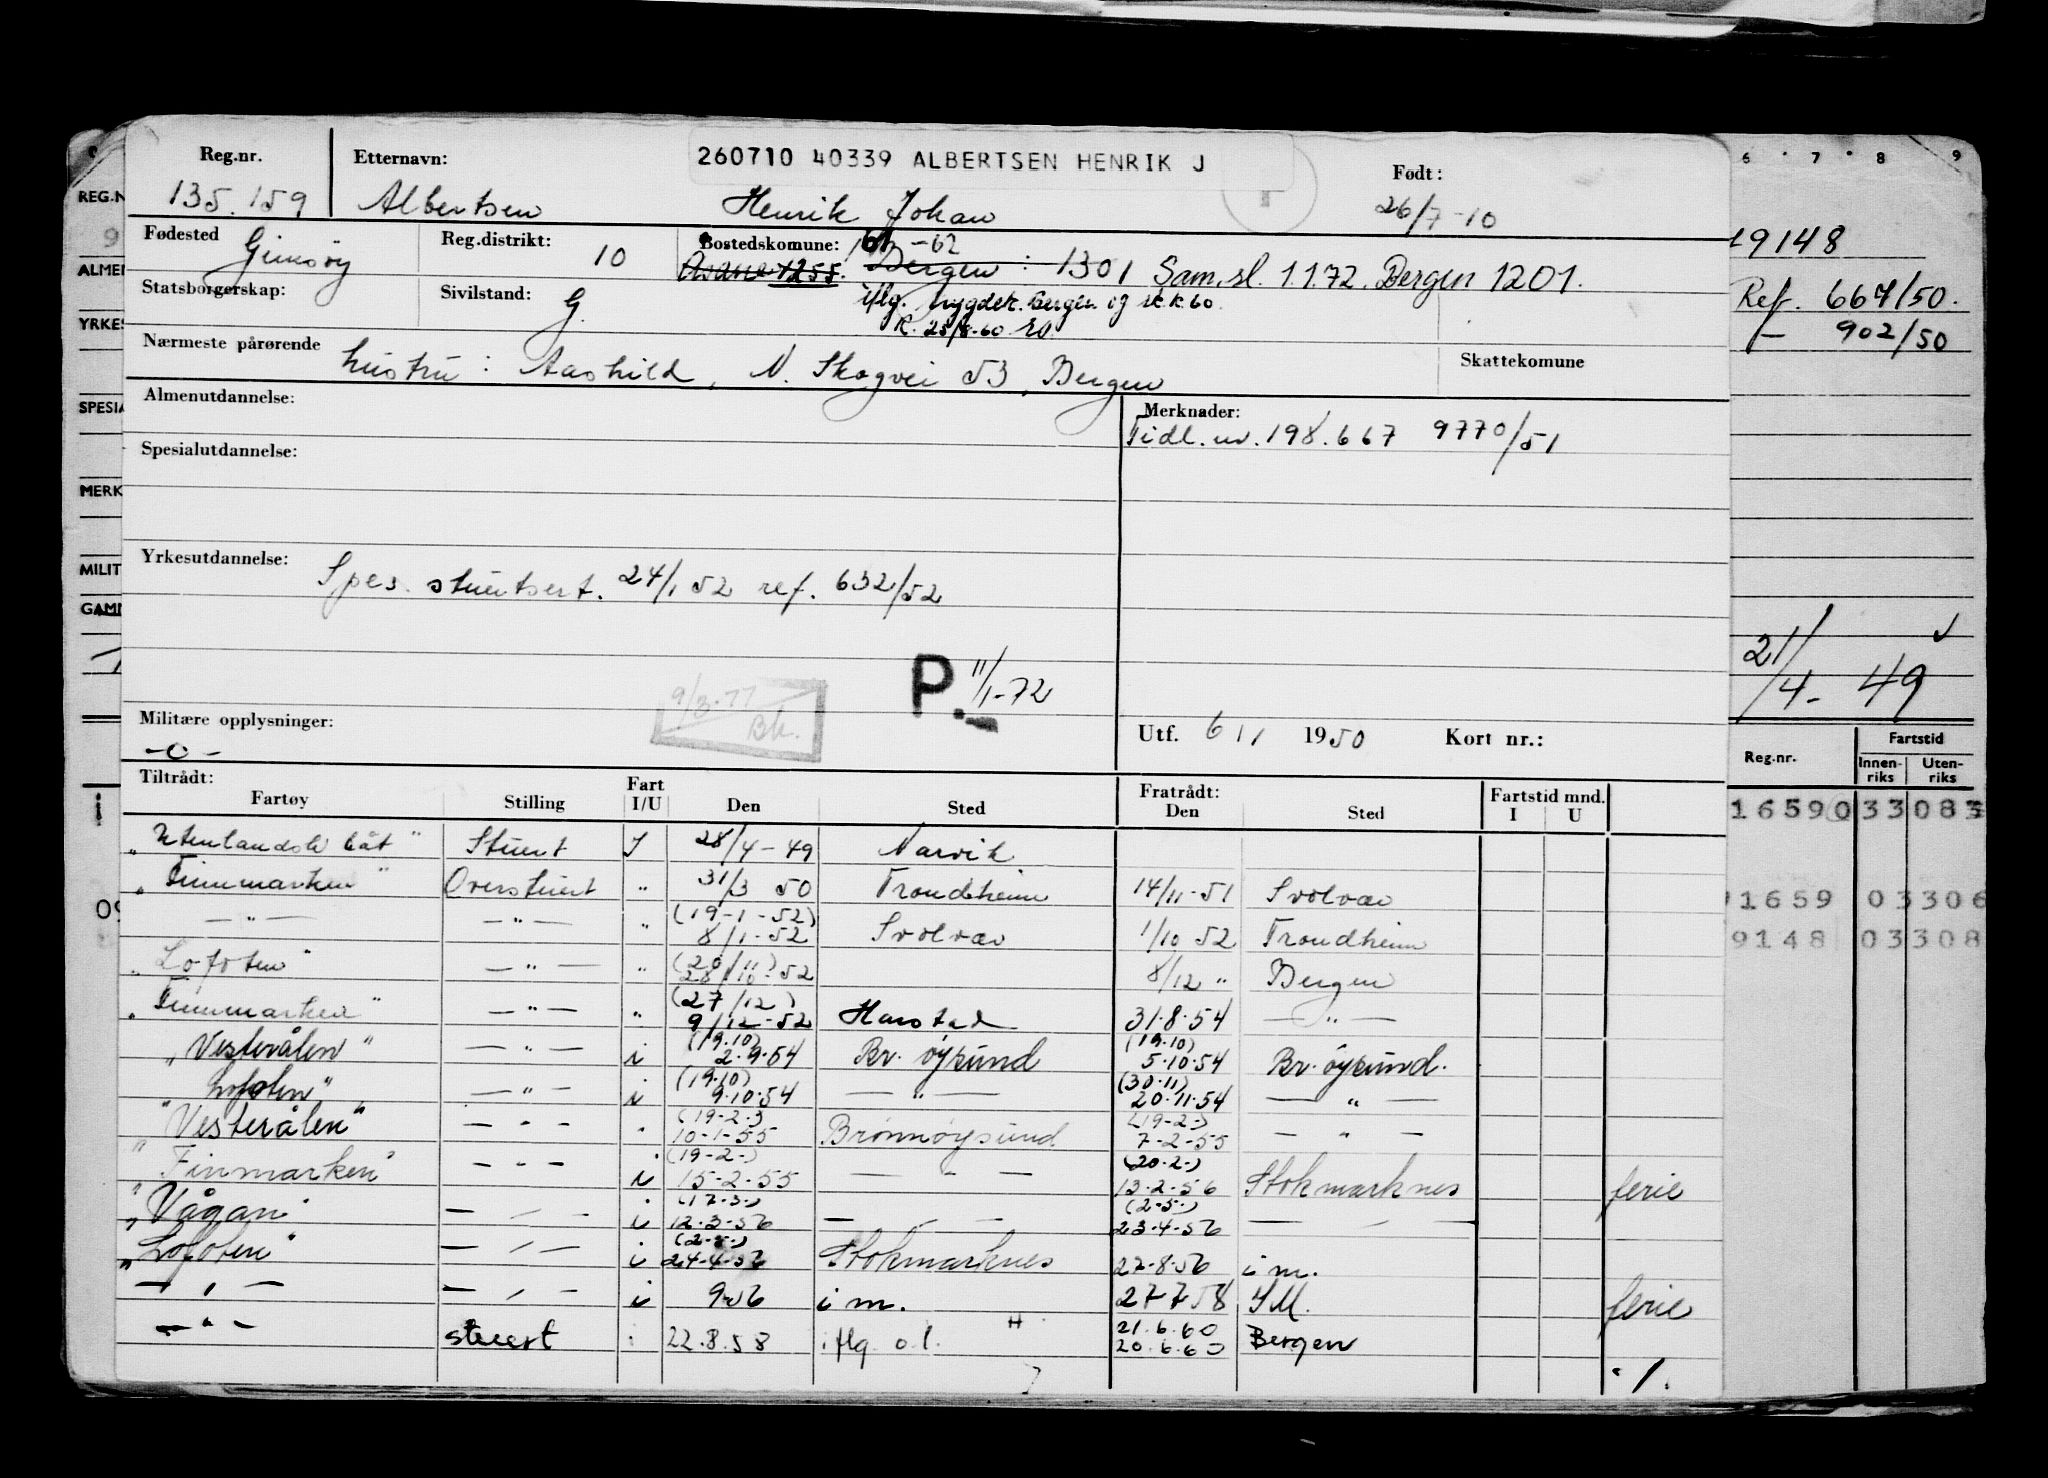 260710 40339 ALBERTSEN HENRIK J
Reg.nr. Etternavn: Født:
135.159 Albertsen Henrik Johan 26/7-10
Fødested Gimsøy Reg.distrikt: 10 Bostedskomune: -62
1255. Bergen: 1301 Sam.sl. 1.1.72. Bergen 1201.
Statsborgerskap: Sivilstand: G.
iflg. trygdek. Bergen og sk.k. 60.
Nærmeste pårørende Skattekomune
hustru: Aashild, N. Skogvei 53, Bergen
Almenutdannelse: Merknader:
Tidl. nr. 198.667 9770/51
Spesialutdannelse:
Yrkesutdannelse: Spes. stuertsert. 24/1 52 ref. 632/52
P. 11/1-72
9/3-77 Bk.
Militære opplysninger: Utf. 6/1 1950 Kort nr.:
-0-
Tiltrådt: Fratrådt: Fartstid mnd.
Fartøy Stilling Fart I/U Den Sted Den Sted I U
"Utenlandsk båt" Stuert I 28/4-49 Narvik
"Finnmarken" Overstuert " 31/3 50 Trondheim 14/11-51 Svolvær
—"— —"— " (19-1-52) 8/1-52 Svolvær 1/10 52 Trondheim
"Lofoten" —"— " (20/11) 28/10-52 8/12 " Bergen
"Finnmarken" —"— " (27/12) 9/12-52 Harstad 31.8.54 —"—
"Vesterålen" —"— i (19.10) 2.9.54 Br. øysund (19.10) 5.10.54 Br. øysund.
"Lofoten" —"— i (19.10) 9.10.54 —"— (30.11) 20.11.54 —"—
"Vesterålen" —"— " (19-2-) 10-1-55 Brønnøysund (19-2-) 7-2-55 —"—
"Finmarken" —"— i (19-2-) 15-2-55 — — — (20.2.) 13.2.56 Stokmarknes ferie
"Vågan" —"— i (17.3.) 12.3.56 —"— (2.5.) 23.4.56 —"—
"Lofoten" —"— i 24.4.56 Stokmarknes 27.8.56 i m.
—"— —"— i 9.56 i m. 27 7 58 I M. ferie
—"— stuert i 22.8.58 iflg. o.l. 21.6.60 20.6.60 Bergen
./.
REG.N
ALMEN
YRKES
SPESIA
MERK
MILIT
GAMM
6 7 8 9
19148
Ref. 667/50.
— 902/50
21/4-49
Reg.nr. Fartstid
Innenriks Utenriks
16590 33083
1659 03306
9148 03308